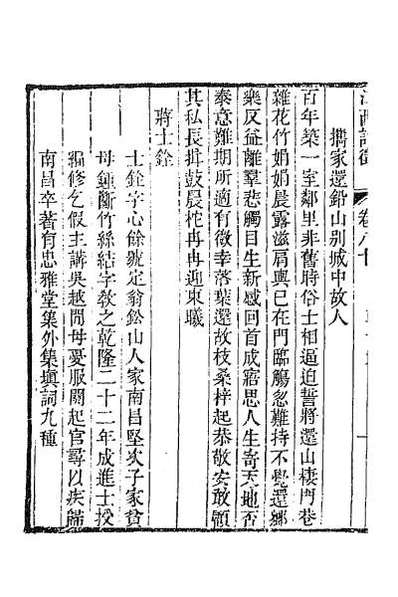 江西詩徵 卷八十
攜家還鉛山別城中故人
百年築一室鄰里非舊時俗士相逼迫誓將還山棲門巷
雜花竹娟娟晨露滋肩輿已在門臨觴忽難持不覺還鄉
樂反益離羣悲觸目生新感回首成寤思人生寄天地否
泰意難期所適有徼幸落葉還故枝桑梓起恭敬安敢顧
其私長揖鼓晨枻冉冉迎東曦
蔣士銓
士銓字心餘號定翁鈆山人家南昌堅次子家貧
母鍾斷竹絲結字敎之乾隆二十二年成進士授
編修乞假主講吳越間母憂服闋起官尋以疾歸
南昌卒著有忠雅堂集外集塡詞九種